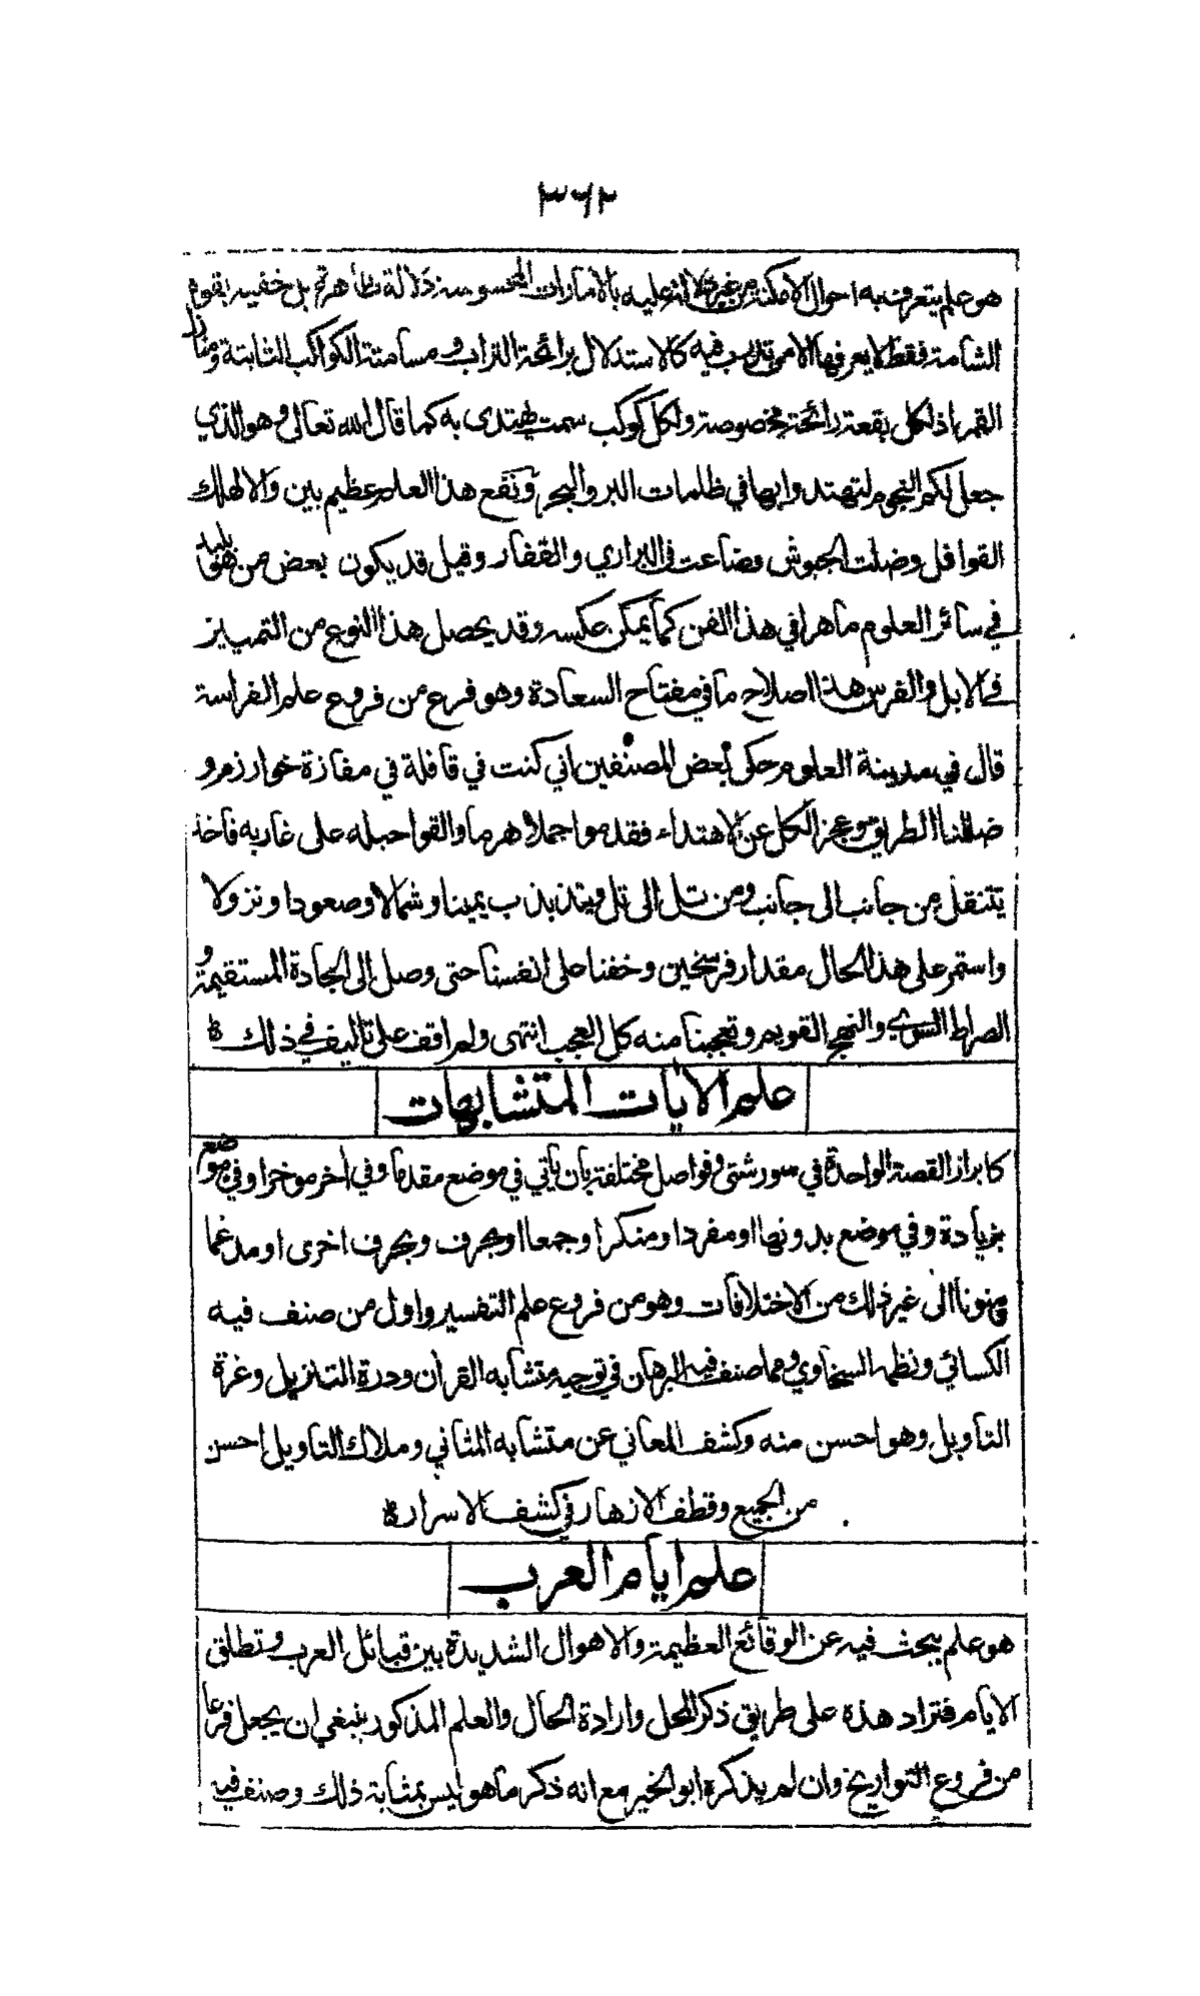 ٣٦٢
هو علم يتعرف به احوال الامكنة من غير دلالة عليه بالامارات المحسوسة دلالة ظاهرة بل خفيه بقوة
الشامة فقط لا يعرفها الا من تدرب فيه كالاستدلال برائحة التراب و مسامتة الكواكب الثابتة و منازل
القمر اذ لكل بقعة رائحة مخصوصة و لكل كوكب سمت يهتدى به كما قال الله تعالى وهو الذي
جعل لكم النجوم لتهتدوا بها في ظلمات البر والبحر ونفع هذا العلم عظيم بين والا لهلك
القوافل وضلت الجيوش وضاعت في البراري والقفار وقيل قد يكون بعض من هو بليد
في سائر العلوم ماهرا في هذا الفن كما يمكن عكسه وقد يحصل هذا النوع من التمييز
في الابل والفرس هذا اصلاح ما في مفتاح السعادة وهو فرع من فروع علم الفراسة
قال في مدينة العلوم حكى بعض المصنفين اني كنت في قافلة في مفازة خوارزم و
ضللنا الطريق وعجز الكل عن الاهتداء فقدموا جملا هرما والقوا حبله على غاربه فاخذ
يتنقل من جانب الى جانب ومن تل الى تل ويتذبذب يمينا وشمالا وصعودا ونزولا
واستمر على هذا الحال مقدار فرسخين وخفنا على انفسنا حتى وصل الى الجادة المستقيمة و
الصراط السوي والنهج القويم وتعجبنا منه كل العجب انتهى ولم اقف على تاليف في ذلك
علم الايات المتشابهات
كابراز القصة الواحدة في سور شتى وفواصل مختلفة بان ياتي في موضع مقدما وفي اخر موخرا وفي موضع
بزيادة وفي موضع بدونها او مفردا ومنكرا وجمعا او بحرف وبحرف اخرى او مدغما
ومنونا الى غير ذلك من الاختلافات وهو من فروع علم التفسير واول من صنف فيه
الكسائي ونظمه السخاوي ومما صنف فيه البرهان في توجيه متشابه القران ودرة التنزيل وغرة
التاويل وهو احسن منه وكشف المعاني عن متشابه المثاني وملاك التاويل احسن
من الجميع وقطف الازهار في كشف الاسرار
علم ايام العرب
هو علم يبحث فيه عن الوقائع العظيمة والاهوال الشديدة بين قبائل العرب وتطلق
الايام فتراد هذه على طريق ذكر المحل وارادة الحال والعلم المذكور ينبغي ان يجعل فرعا
من فروع التواريخ وان لم يذكره ابو الخير مع انه ذكر ما هو ليس بمثابة ذلك وصنف فيه